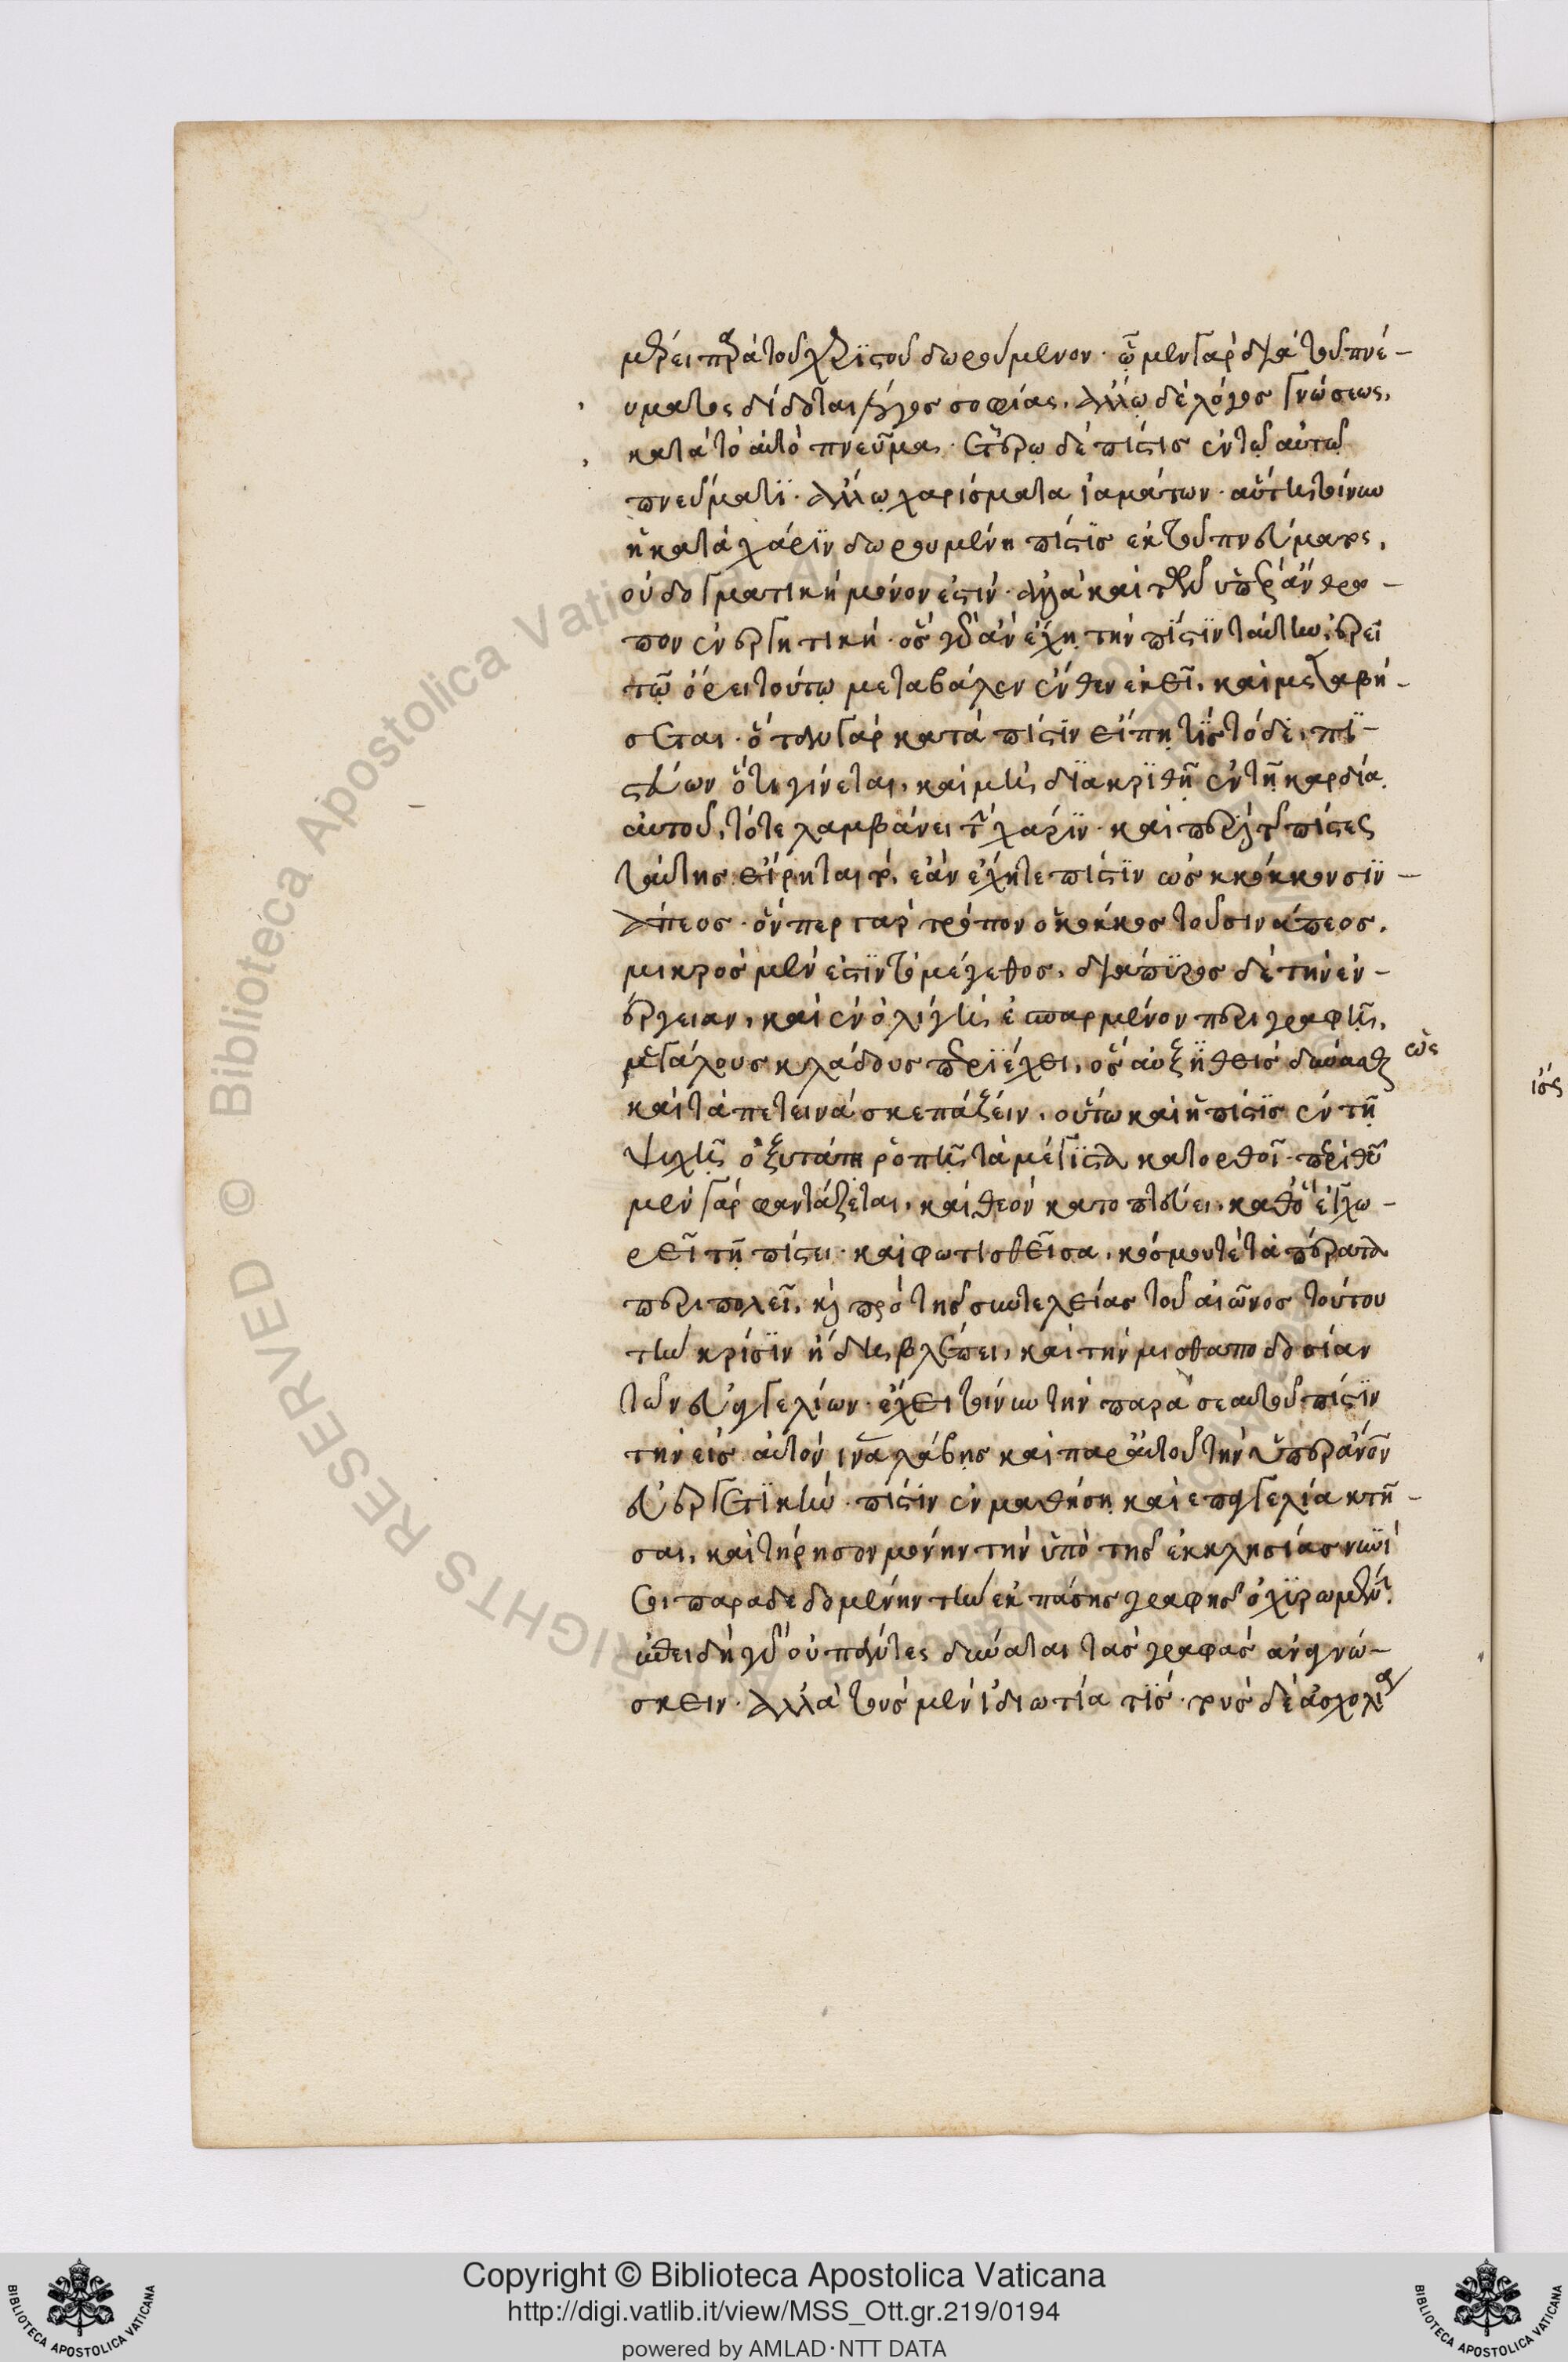 μέρει παρὰ τοῦ χριϊστοῦ δωρούμενον· ᾧ μὲν γὰρ διὰ τοῦ πνέ-
υματος δίδοται λόγος σοφίας, ἄλλῳ δὲ λόγος γνώσεως,
κατὰ τὸ αὐτὸ πνεῦμα· ἑτέρῳ δὲ πίστις ἐν τῷ αὐτῷ
πνεύματϊ· ἄλλῳ χαρίσματα ἰαμάτων· αὕτη τοίνυν
ἡ κατὰ χάρϊν δωρουμένη πίστϊς ἐκ τοῦ πνεύματος,
οὐ δογματικὴ μόνον ἐστὶν· ἀλλὰ καὶ τῶν ὑπὲρ ἄνθρω-
πον ἐνεργητικὴ· ὃς γὰρ ἂν ἔχῃ τὴν πίστϊν ταύτην, ἐρεῖ
τῷ ὄρει τούτῳ μετάβαλεν ἔνθεν ἐκεῖ, καὶ μεταβή-
σεται· ὅταν γὰρ κατὰ πίστϊν εἴπῃ τϊς τόδε, πϊ-
στεύων ὅτι γίνεται, καὶ μὴ διακρϊθῇ ἐν τῇ καρδίᾳ
αὐτοῦ, τότε λαμβάνει τὴν χάρϊν· καὶ περὶ τῆς πίστεως
ταύτης εἴρηται τό, ἐὰν ἔχητε πίστϊν ὡς κόκκον σϊν-
άπεος· ὅνπερ γὰρ τρόπον ὁ κόκκος τοῦ σινάπεος,
μικρὸς μὲν ἐστϊν τὸ μέγεθος, διάπϋρος δὲ τὴν ἐν-
έργειαν, καὶ ἐν ὀλίγῃ ἐσπαρμένον περιγραφῇ,
μεγάλους κλάδους περϊέχει, ὃς αὐξηθεὶς δύναται ὡς
καὶ τὰ πετεινὰ σκεπάζειν, οὕτω καὶ ἡ πίστϊς ἐν τῇ
ψυχῇ ὀξυτάτῃ ῥοπῇ τὰ μέγϊστα κατορθοῖ· περὶ θεοῦ
μὲν γὰρ φαντάζεται, καὶ θεὸν κατοπτεύει, καθ' ὃ ἐγχω-
ρεῖ τῇ πίστει· καὶ φωτισθεῖσα, κόσμου τὲ τὰ πέρατα
περιπολεῖ, καὶ πρὸ τῆς συντελείας τοῦ αἰῶνος τούτου
τὴν κρίσϊν ἤδη βλέπει, καὶ τὴν μισθαποδοσίαν
τῶν εὐαγγελίων· ἔχει τοίνυν τὴν παρὰ σεαυτοῦ πίστϊν
τὴν εἰς αὐτόν ἵνα λάβῃς καὶ παρ' αὐτοῦ τὴν ὑπὲρ ἄνθρωπον
εὐεργετϊκήν· πίστϊν ἐν μαθήσῃ καὶ ἐπαγγελία κτῆ-
σαι, καὶ τήρησον μόνην τὴν ὑπὸ τῆς ἐκκλησίας νυνϊὶ
σοι παραδεδομένην τὴν ἐκ πάσης γραφῆς ὀχϊρωμένην.
ἐπειδὴ γὰρ οὐ πάντες δύναται τὰς γραφὰς ἀναγνώ-
σκειν· ἀλλὰ τοὺς μὲν ἰδιωτία τϊς· τοὺς δὲ ἀσχολία
ἰσ
Copyright © Biblioteca Apostolica Vaticana
http://digi.vatlib.it/view/MSS_Ott.gr.219/0194
powered by AMLAD·NTT DATA
BIBLIOTECA APOSTOLICA VATICANA
BIBLIOTECA APOSTOLICA VATICANA
© Biblioteca Apostolica Vaticana ALL RIGHTS RESERVED